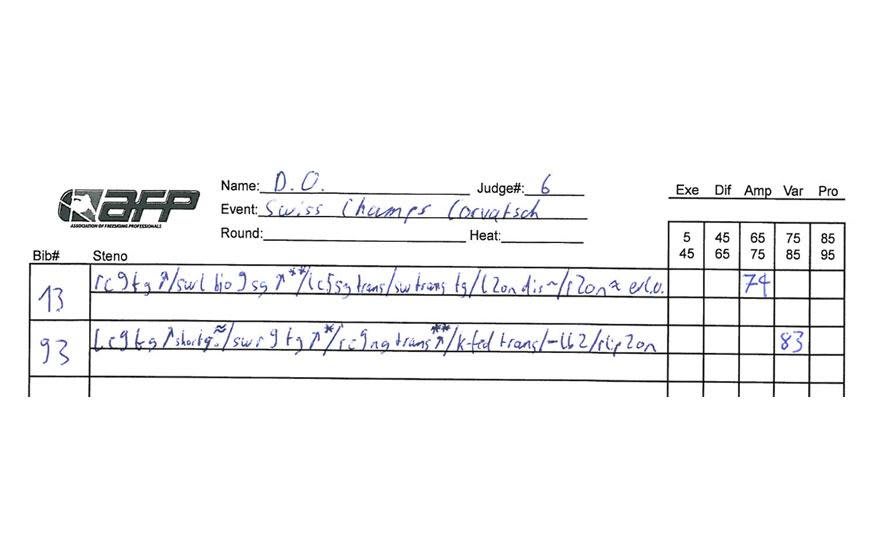 AFP
ASSOCIATION OF FREESKIING PROFESSIONALS
Name: D.O. Judge#: 6
Event: Swiss Champs Corvatsch
Round: Heat:
Exe Dif Amp Var Pro
5 45 65 75 85
45 65 75 85 95
Bib# Steno
13 rc9tg↗/swl bio9sg↗**/lc5sgtrans/swtrans tg/l2on dis~/r2on
74
93 Lc9tg↗shortg.≈/swr9tg↗*/rc9ngtrans↗**/k-fed trans/-lb2/rlip2on
83